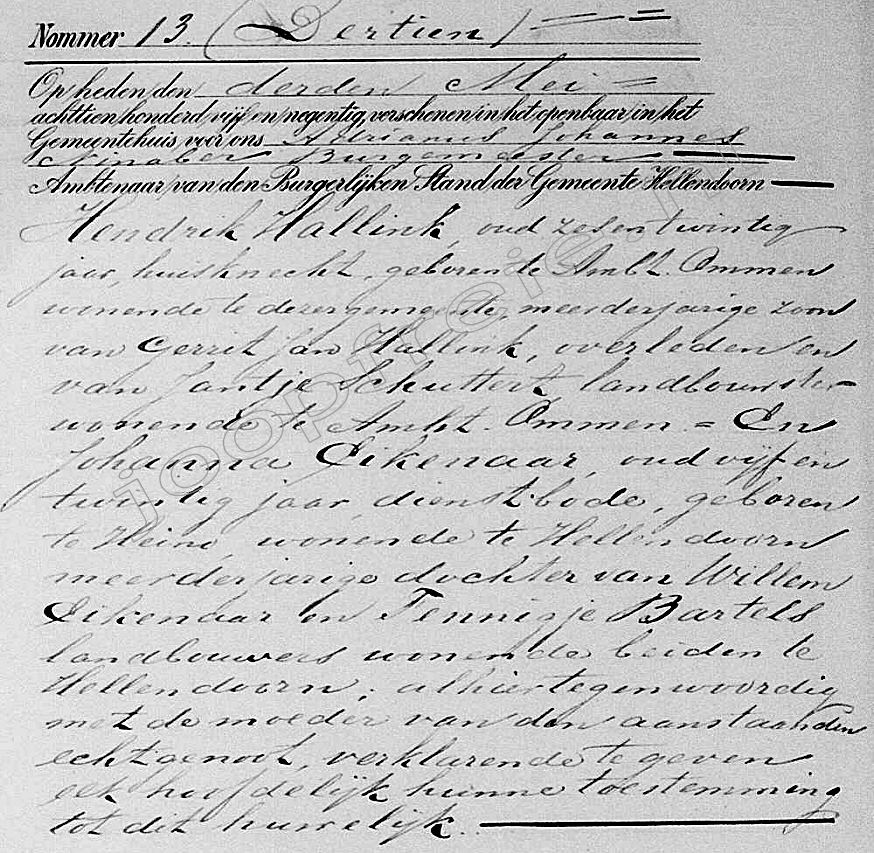 Nommer 13. (Dertien) = =
Op heden den derden Mei =
achttien honderd vijf en negentig, verschenen in het openbaar in het
Gemeentehuis, voor ons Adrianus Johannes
Ninaber Burgemeester
Ambtenaar van den Burgerlijken Stand der Gemeente Hellendoorn
Hendrik Hallink, oud zesentwintig
jaar, huisknecht, geboren te Ambt. Ommen
wonende te dezer gemeente, meerderjarige zoon
van Gerrit Jan Hallink, overleden en
van Jantje Schuttert, landbouwster
wonende te Ambt. Ommen = En
Johanna Eikenaar, oud vijf en
twintig jaar, dienstbode, geboren
te Heino, wonende te Hellendoorn
meerderjarige dochter van Willem
Eikenaar en Tennigje Bartels
landbouwers wonende beiden te
Hellendoorn, alhier tegenwoordig
met de moeder van den aanstaanden
echtgenoot, verklarende te geven
elk hoofdelijk hunne toestemming
tot dit huwelijk.